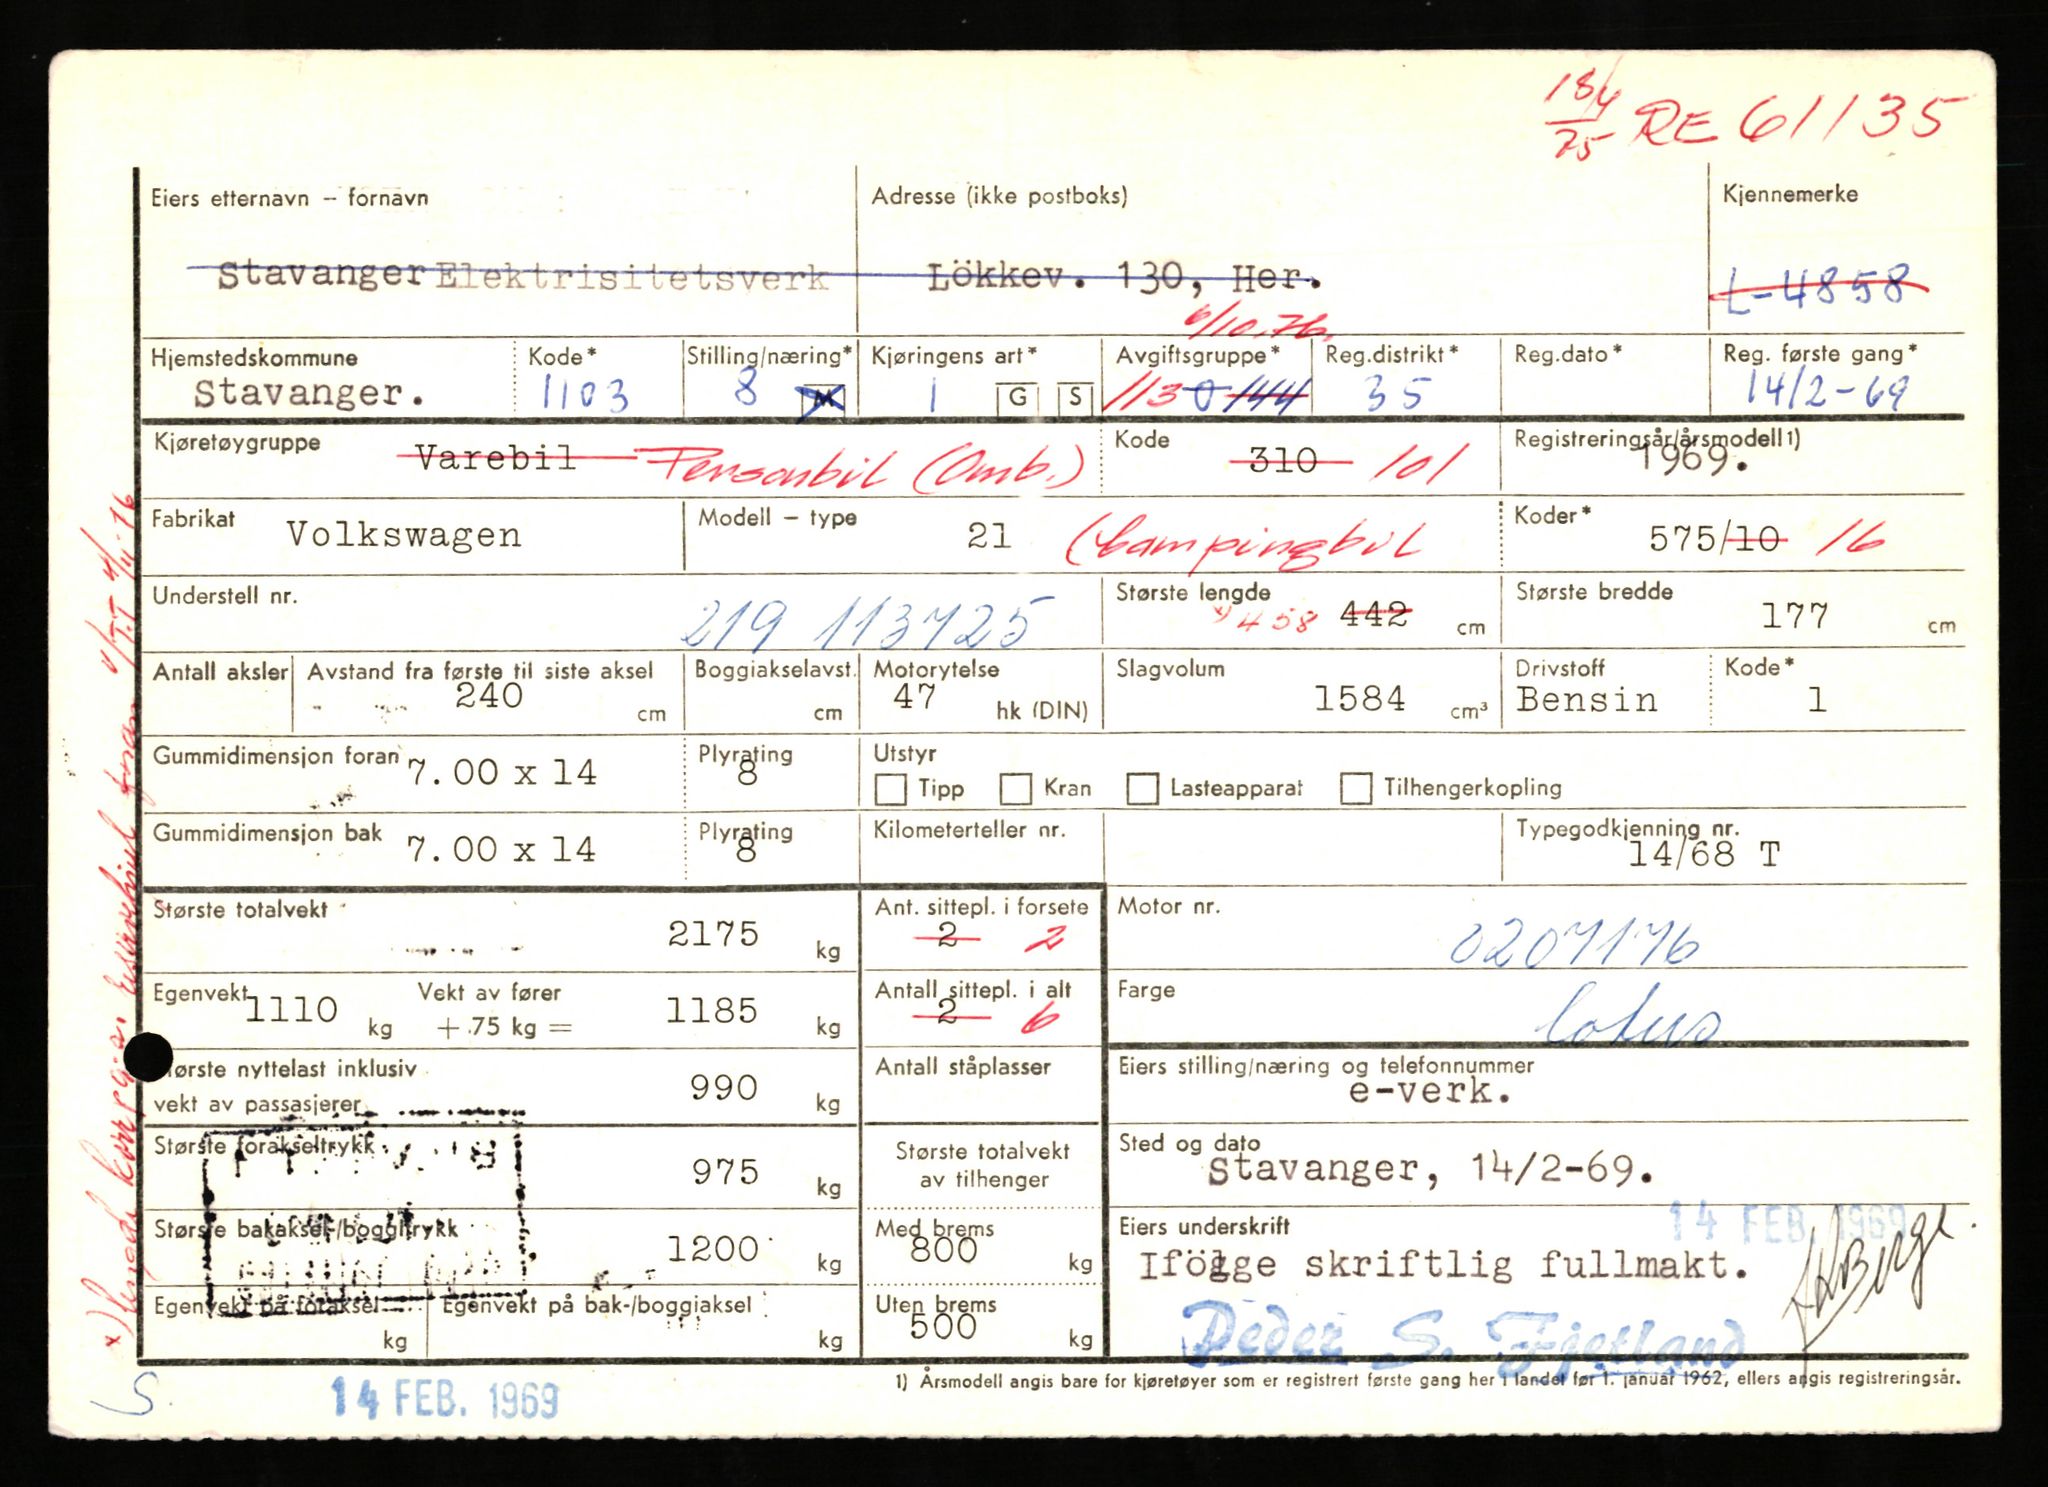 18/4
75 RE 61135
Eiers etternavn – fornavn Adresse (ikke postboks) Kjennemerke
Stavanger Elektrisitetsverk Lökkev. 130, Her. L-4858
6/10.76.
Hjemstedskommune Kode* Stilling/næring* Kjøringens art* Avgiftsgruppe* Reg.distrikt* Reg.dato* Reg. første gang*
Stavanger. 1103 8 M 1 G S 113 0 144 35 14/2-69
Kjøretøygruppe Varebil Personbil (Omb.) Kode 310 101 Registreringsår/årsmodell 1) 1969.
Fabrikat Volkswagen Modell – type 21 (Campingbil Koder* 575/10 16
Understell nr. 219 113725 Største lengde x) 458 442 cm Største bredde 177 cm
Antall aksler Avstand fra første til siste aksel 240 cm Boggiakselavst. cm Motorytelse 47 hk (DIN) Slagvolum 1584 cm³ Drivstoff Bensin Kode* 1
Gummidimensjon foran 7.00 x 14 Plyrating 8 Utstyr
Tipp Kran Lasteapparat Tilhengerkopling
Gummidimensjon bak 7.00 x 14 Plyrating 8 Kilometerteller nr. Typegodkjenning nr. 14/68 T
Største totalvekt 2175 kg Ant. sittepl. i forsete 2 2 Motor nr. 0207176
Egenvekt 1110 kg Vekt av fører + 75 kg = 1185 kg Antall sittepl. i alt 2 6 Farge lotus
Største nyttelast inklusiv vekt av passasjerer 990 kg Antall ståplasser Eiers stilling/næring og telefonnummer
e-verk.
Største forakseltrykk 975 kg Største totalvekt av tilhenger Sted og dato
Stavanger, 14/2-69.
Største bakaksel-/boggitrykk 1200 kg Med brems 800 kg Eiers underskrift 14 FEB. 1969
Ifölgge skriftlig fullmakt.
Egenvekt på foraksel kg Egenvekt på bak-/boggiaksel kg Uten brems 500 kg Peder S. Fjetland
1) Årsmodell angis bare for kjøretøyer som er registrert første gang her i landet før 1. januar 1962, ellers angis registreringsår.
S. 14 FEB. 1969